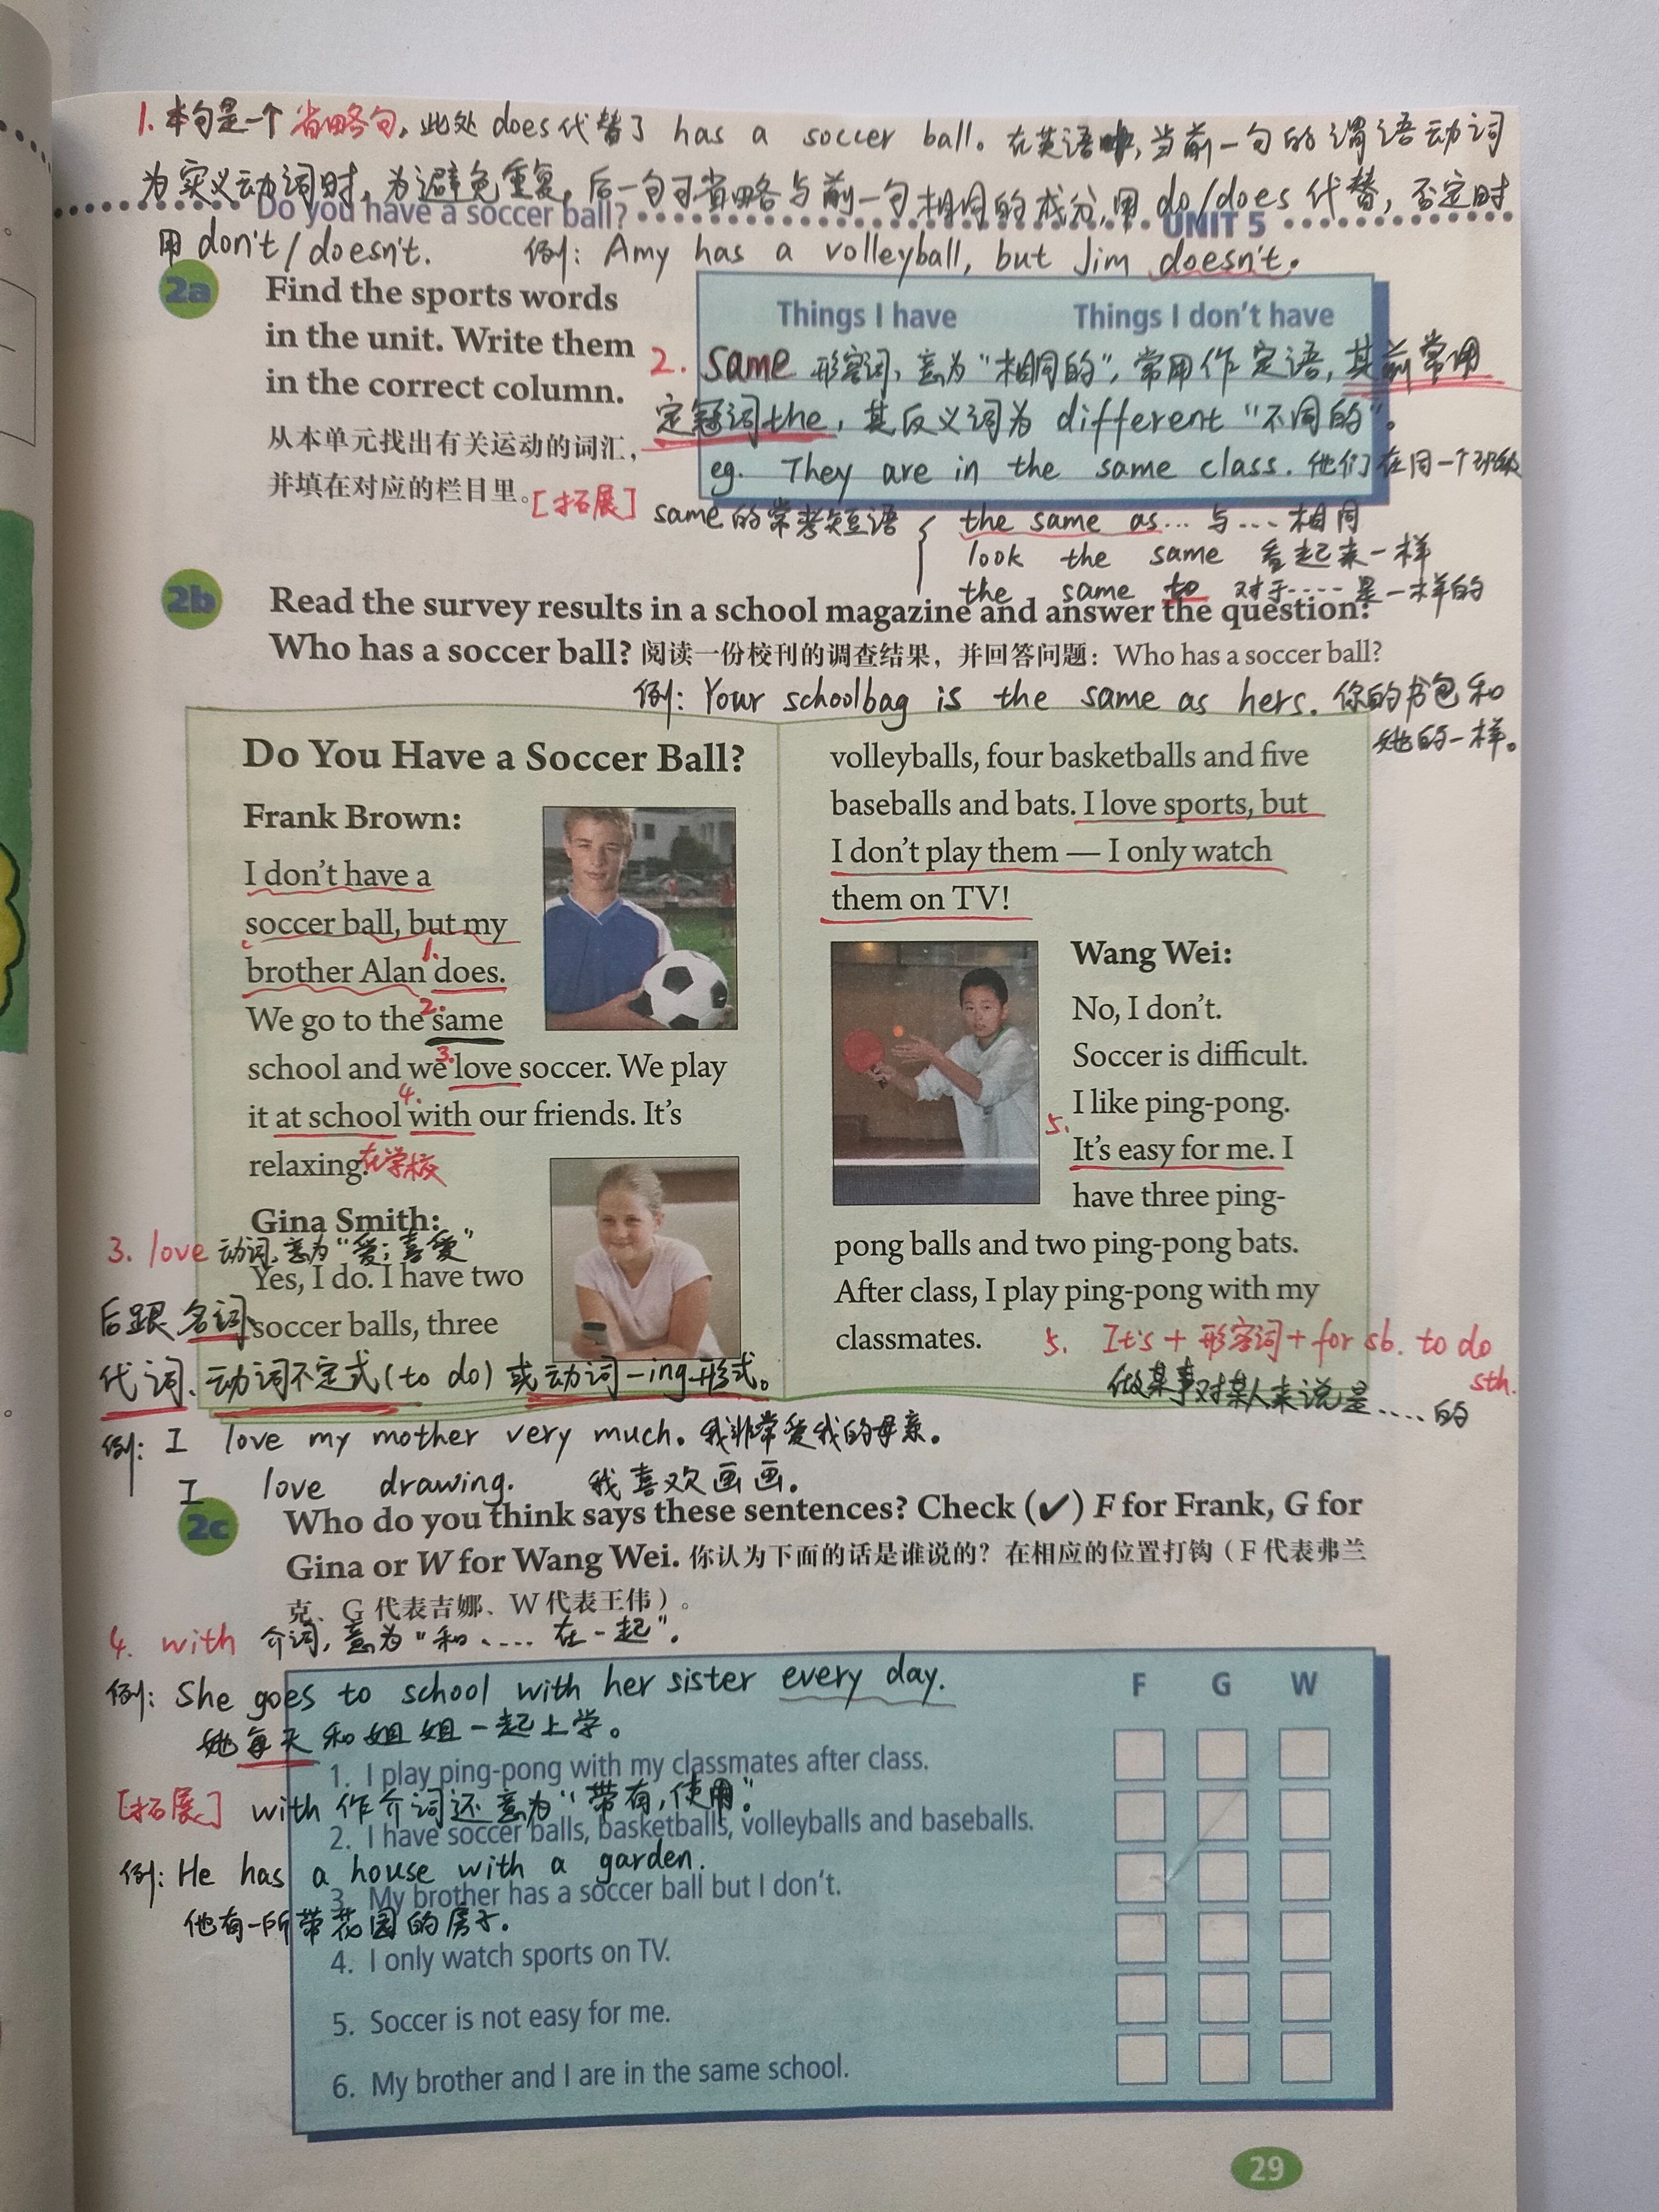 1. 本句是一个省略句，此处 does代替了 has a soccer ball。在英语中，当前一句的谓语动词
为实义动词时，为避免重复，后一句可省略与前一句相同的成分，用 do/does 代替，否定时
Do you have a soccer ball?
UNIT 5
用 don't/doesn't. 例：Amy has a volleyball, but Jim doesn't.
2a Find the sports words
in the unit. Write them
in the correct column.
从本单元找出有关运动的词汇，
并填在对应的栏目里。
Things I have Things I don't have
2. same 形容词，意为“相同的”，常用作定语，其前常用
定冠词the，其反义词为 different “不同的”。
eg. They are in the same class. 他们在同一个班级
[拓展] same的常考短语
the same as... 与...相同
look the same 看起来一样
the same to 对于……是一样的
2b Read the survey results in a school magazine and answer the question:
Who has a soccer ball? 阅读一份校刊的调查结果，并回答问题：Who has a soccer ball?
例：Your schoolbag is the same as hers. 你的书包和
她的一样。
Do You Have a Soccer Ball?
Frank Brown:
I don't have a
soccer ball, but my
1.
brother Alan does.
2.
We go to the same
3.
school and we love soccer. We play
4.
it at school with our friends. It's
relaxing. 在学校
Gina Smith:
3. love 动词，意为“爱；喜爱”
Yes, I do. I have two
后跟名词、
soccer balls, three
代词、动词不定式(to do)或动词-ing形式。
volleyballs, four basketballs and five
baseballs and bats. I love sports, but
I don't play them — I only watch
them on TV!
Wang Wei:
No, I don't.
Soccer is difficult.
I like ping-pong.
5.
It's easy for me. I
have three ping-
pong balls and two ping-pong bats.
After class, I play ping-pong with my
classmates.
5. It's + 形容词 + for sb. to do
sth.
做某事对某人来说是....的
例：I love my mother very much. 我非常爱我的母亲。
I love drawing. 我喜欢画画。
2c Who do you think says these sentences? Check (✔) F for Frank, G for
Gina or W for Wang Wei. 你认为下面的话是谁说的？在相应的位置打钩（F代表弗兰
克、G代表吉娜、W代表王伟）。
4. with 介词，意为“和....在一起”。
F G W
例：She goes to school with her sister every day.
她每天和姐姐一起上学。
1. I play ping-pong with my classmates after class.
[拓展] with 作介词还意为“带有，使用”。
2. I have soccer balls, basketballs, volleyballs and baseballs.
例：He has a house with a garden.
3. My brother has a soccer ball but I don't.
他有一所带花园的房子。
4. I only watch sports on TV.
5. Soccer is not easy for me.
6. My brother and I are in the same school.
29